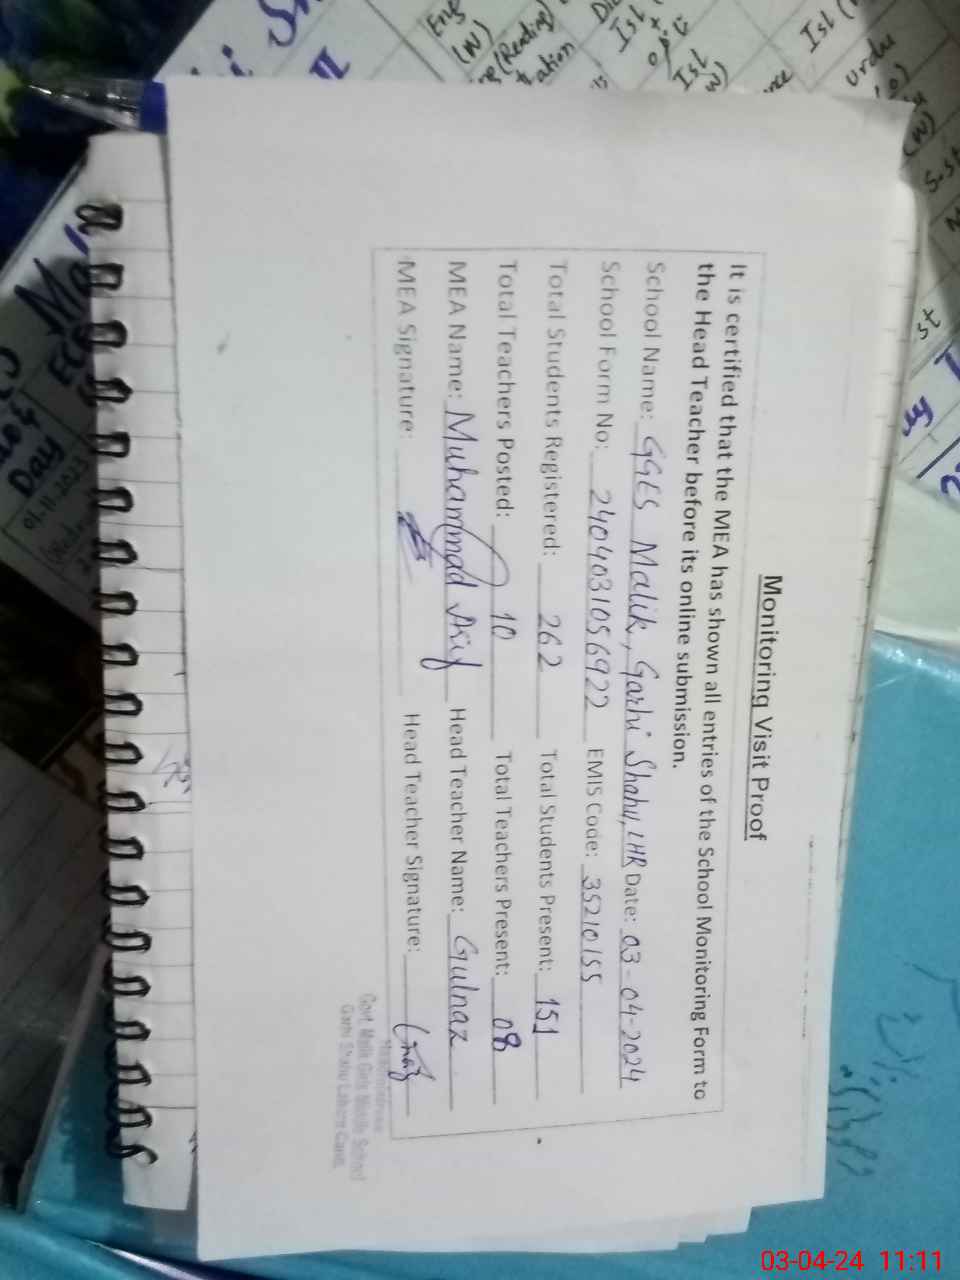 Monitoring Visit Proof
It is certified that the MEA has shown all entries of the School Monitoring Form to
the Head Teacher before its online submission.
School Name: GGES Malik, Garhi Shahu, LHR Date: 03-04-2024
School Form No: 2404031056922 EMIS Code: 35210155
Total Students Registered: 262 Total Students Present: 151
Total Teachers Posted: 10 Total Teachers Present: 08
MEA Name: Muhammad Asif Head Teacher Name: Gulnaz
MEA Signature: Head Teacher Signature:
Govt Malik Girls Middle School
Garhi Shahu Lahore Cantt.
Eng
(W)
(Reading)
Isl
Isl
Isl
Urdu
(W)
st
Day
01.11.2023
03-04-24 11:11